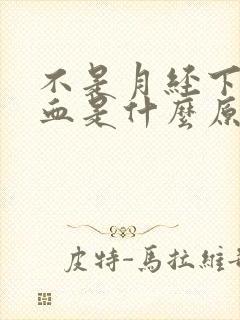 不是月经下
血是什麼原
皮特-馬拉維